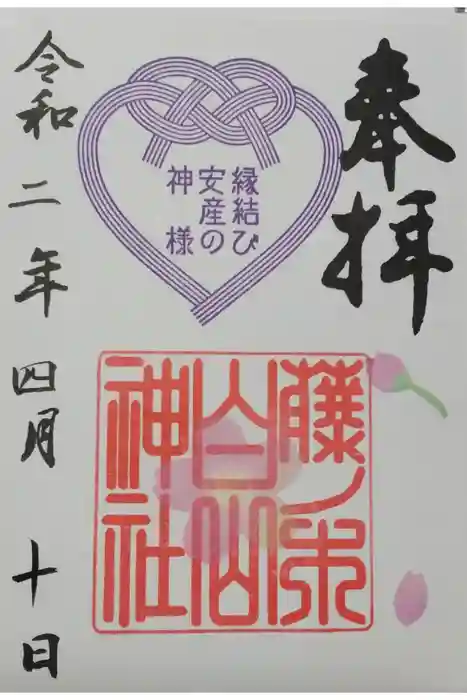 奉拝
縁結び
安産の
神様
藤ノ木
白山
神社
令和二年四月十日